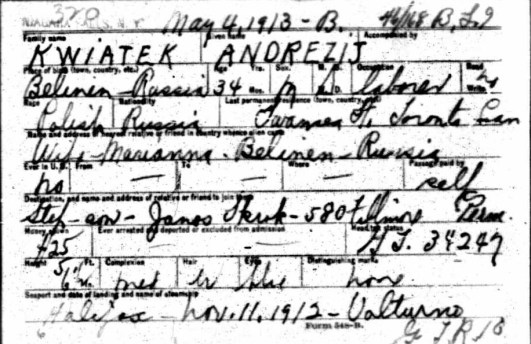 NIAGARA FALLS, N.Y. May 4, 1913 - B. 46/168 B.L.9
Family name Given name Accompanied by
KWIATEK ANDREZIJ
Place of birth (town, country, etc.) Age Yrs. Sex Occupation Read
Belinen - Russia 34 Mos. m laborer Write
Race Nationality Last permanent residence (town, country, etc.)
Polish Russia Swansea Toronto Can
Name and address of nearest relative or friend in country whence alien came
Wife - Marianna - Belinen - Russia
Ever in U.S. From To Where Passage paid by
no — — — self
Destination, and name and address of relative or friend to join there
Step-son - Janos - 580 Fillmore Perm.
Money shown Ever arrested and deported or excluded from admission Head tax status
$25 — — — 34247
Height Ft. Complexion Hair Eyes Distinguishing marks
5 6 In. med br blue none
Seaport and date of landing, and name of steamship
Halifax - Nov. 11. 1912 - Volturno
Form 548-B.